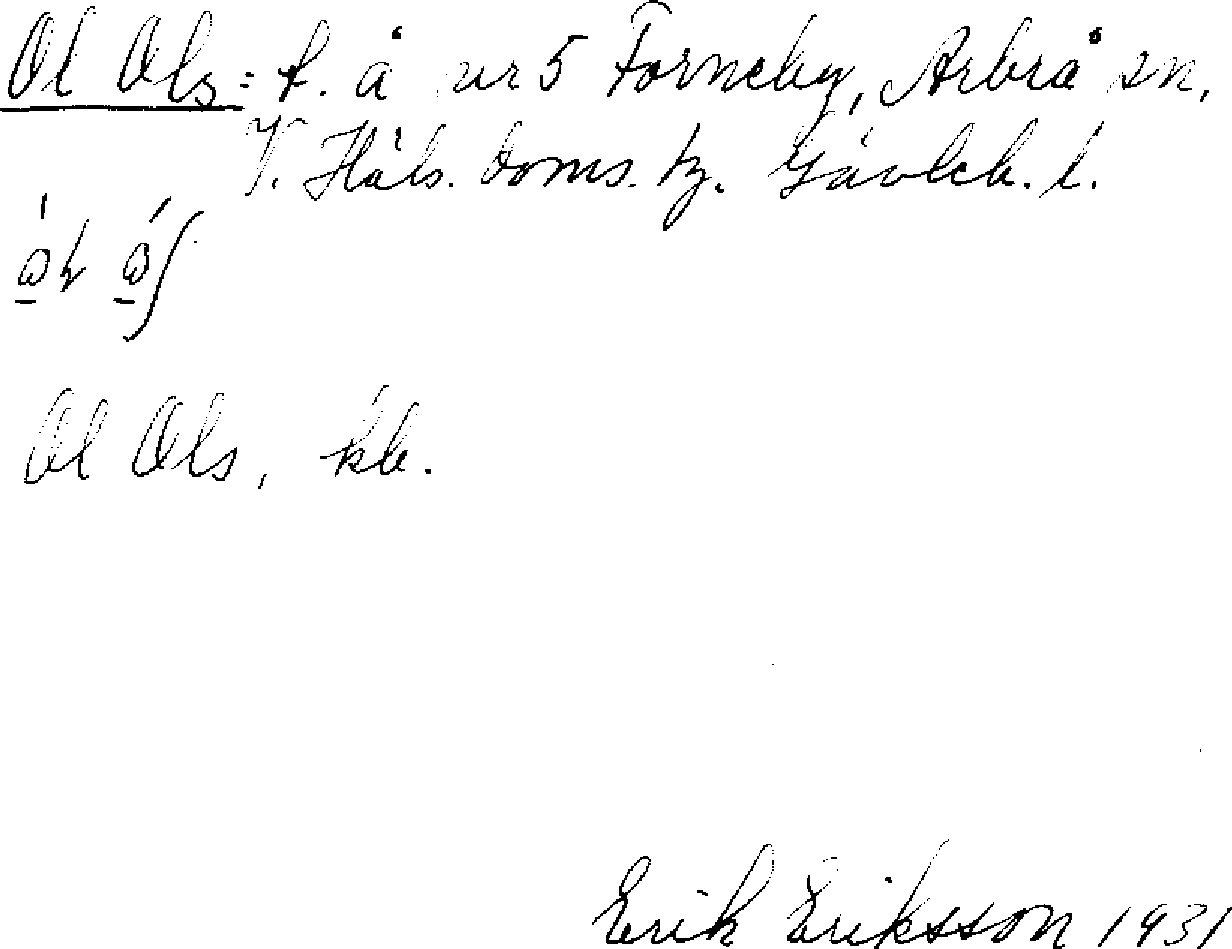 Ol Ols: f. å nr 5 Forneby, Arbrå sn,
V. Häls. doms. tg. Gävleb. l.
Ol Ols, kb.
Erik Eriksson 1931